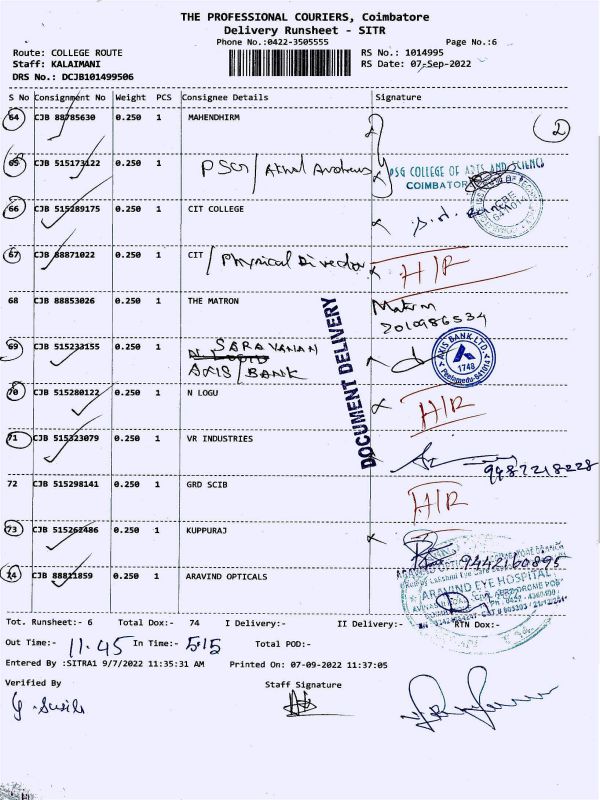 THE PROFESSIONAL COURIERS, Coimbatore
Delivery Runsheet - SITR
Phone No.:0422-3505555 Page No.:6
Route: COLLEGE ROUTE RS No.: 1014995
Staff: KALAIMANI RS Date: 07-Sep-2022
DRS No.: DCJB101499506
S No Consignment No Weight PCS Consignee Details Signature
64 CJB 88785630 0.250 1 MAHENDHIRM
2
65 CJB 515173122 0.250 1 PSG/
PSG COLLEGE OF ARTS AND SCIENCE
COIMBATORE
66 CJB 515289175 0.250 1 CIT COLLEGE
67 CJB 88871022 0.250 1 CIT / Physical Director H/R
68 CJB 88853026 0.250 1 THE MATRON Matron
DOCUMENT DELIVERY
69 CJB 515233155 0.250 1 SARAVANAN
AXIS/BANK
AXIS BANK LTD.
1748
Peelamedu-641014
70 CJB 515280122 0.250 1 N LOGU H/R
71 CJB 515323079 0.250 1 VR INDUSTRIES
9487218228
72 CJB 515298141 0.250 1 GRD SCIB H/R
73 CJB 515262486 0.250 1 KUPPURAJ
9442160895
74 CJB 88811859 0.250 1 ARAVIND OPTICALS
ARAVIND EYE HOSPITAL
Tot. Runsheet:- 6 Total Dox:- 74 I Delivery:- II Delivery:- RTN Dox:-
Out Time:- 11.45 In Time:- 5.15 Total POD:-
Entered By :SITRA1 9/7/2022 11:35:31 AM Printed On: 07-09-2022 11:37:05
Verified By Staff Signature